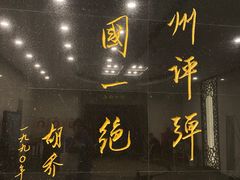 州评弹
國一绝
胡乔
一九九〇年